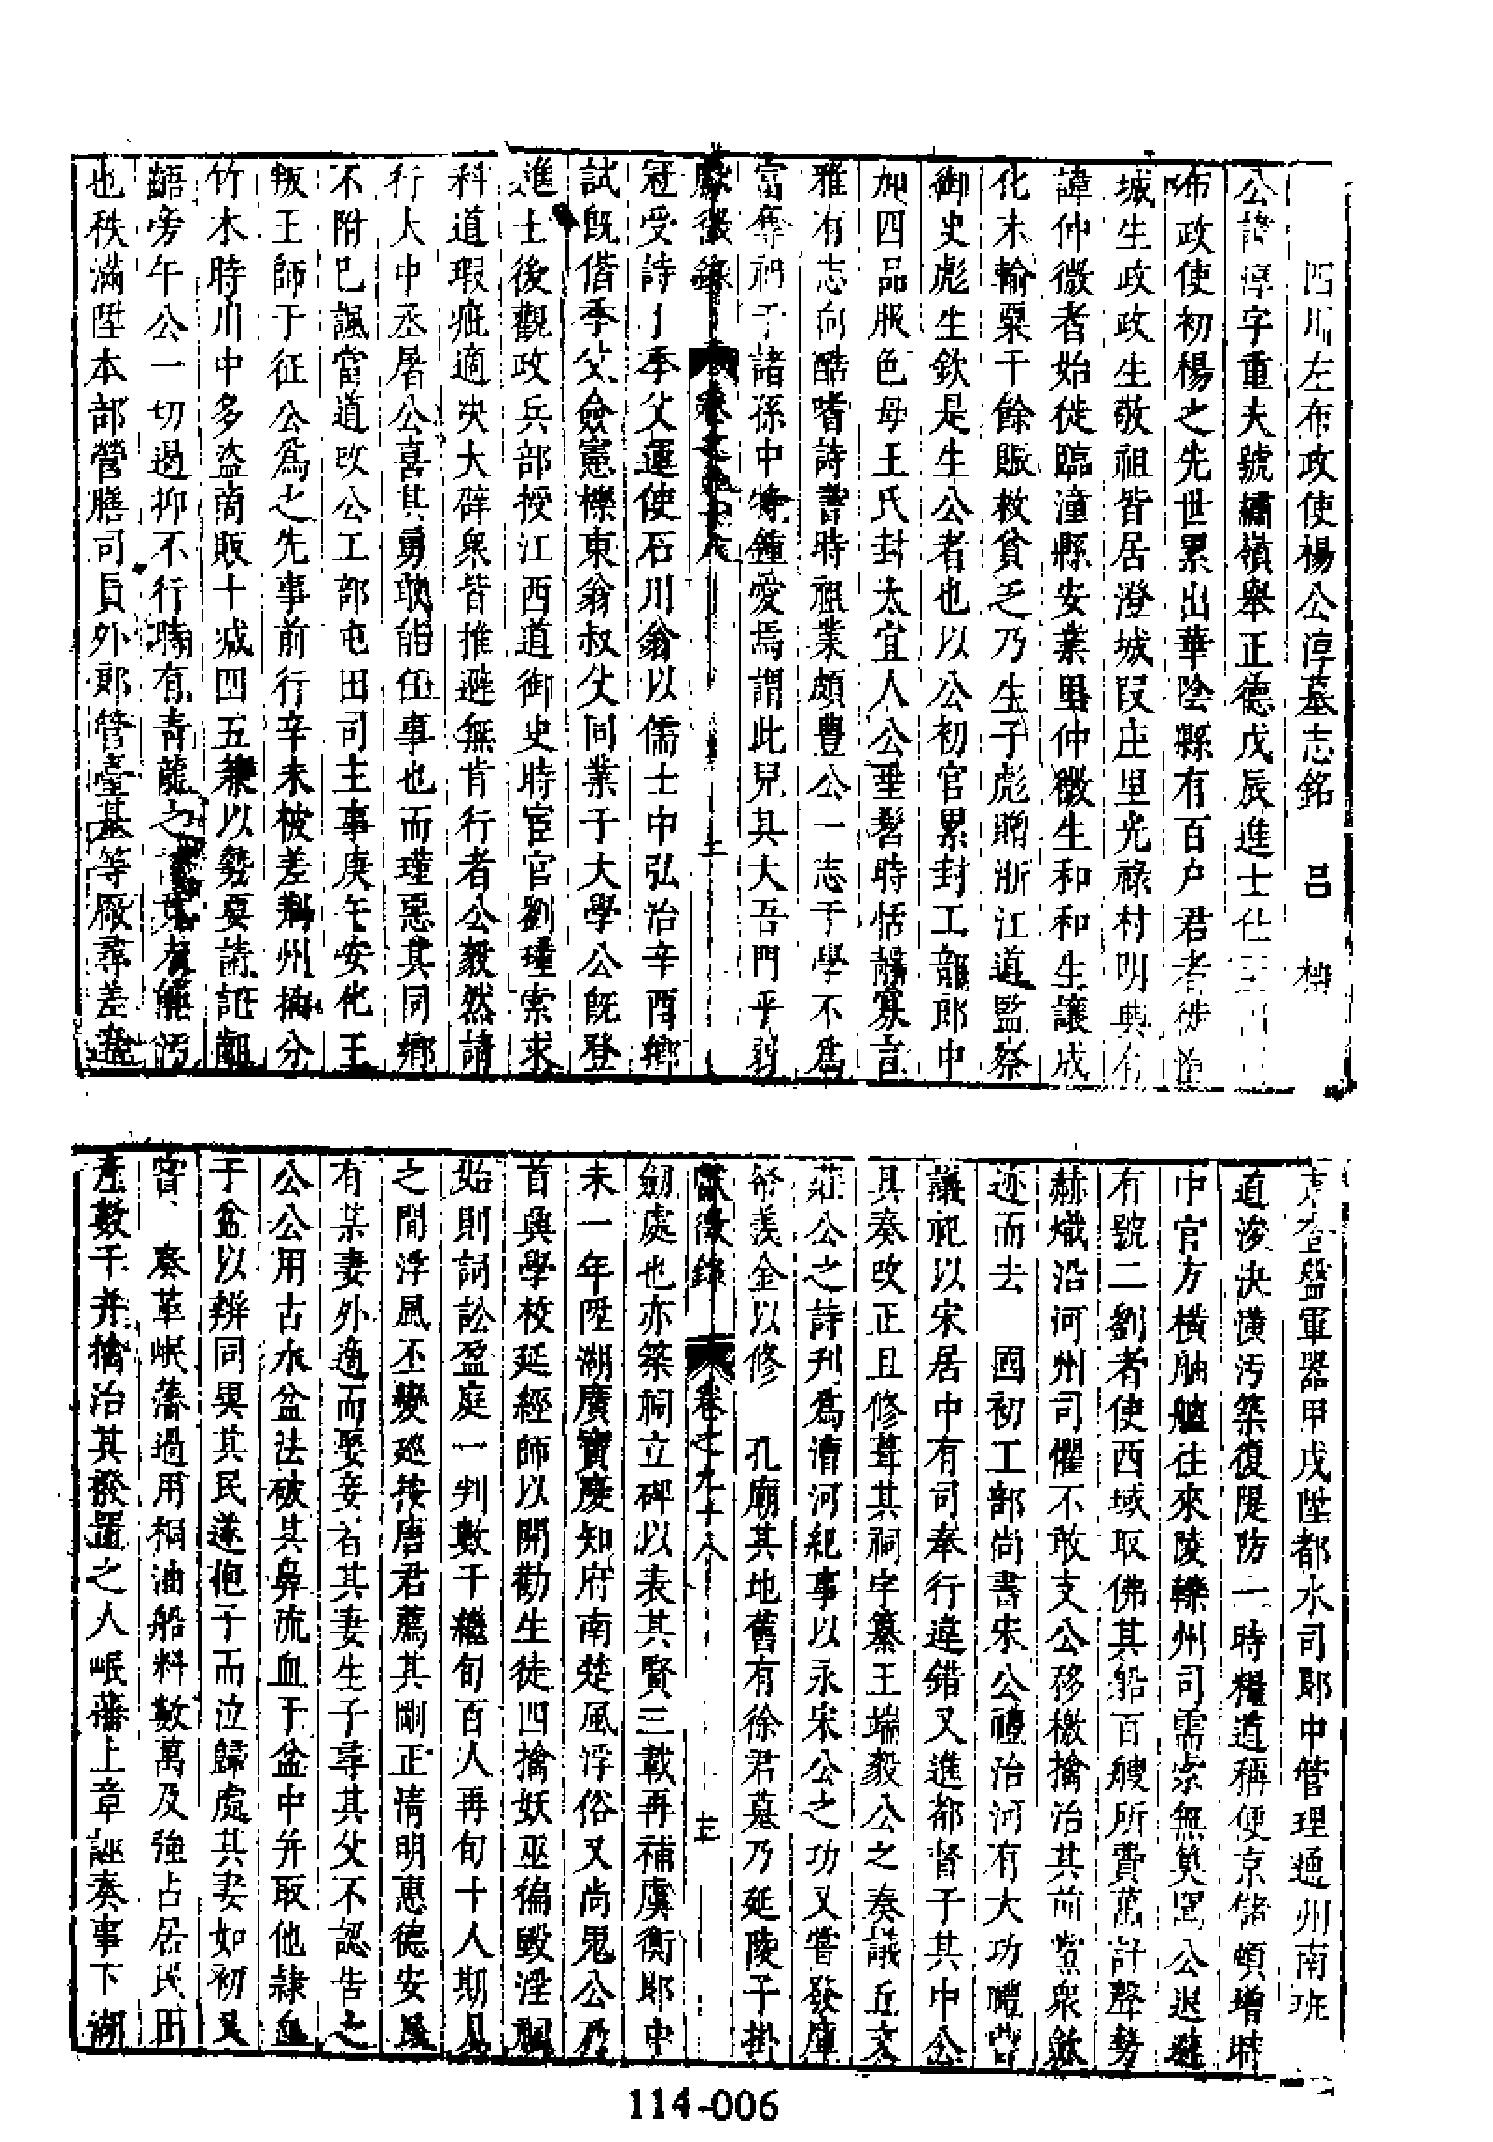 四川左布政使楊公淳墓志銘 呂 柟
公諱淳字重夫號繡嶺舉正德戊辰進士仕至
布政使初楊之先世累出華陰縣有百户君者徙
城生政政生敬祖皆居澄城叚庄里光祿村明興有
諱仲微者始徙臨潼縣安業里仲微生和和生讓成
化末輸粟千餘賑救貧乏乃生子彪贈浙江道監察
御史彪生欽是生公者也以公初官累封工部郎中
加四品服色母王氏封太宜人公垂髫時恬靜寡言
雅有志向酷嗜詩書時祖業頗豊公一志于學不爲
富奪祖于諸孫中特鐘愛焉謂此兒其大吾門乎弱
獻徵錄 卷之九十八
冠受詩于季父運使石川翁以儒士中弘治辛酉鄉
試旣偕季父僉憲櫟東翁叔父同業于大學公旣登
進士後觀政兵部授江西道御史時宦官劉瑾索求
科道瑕疵適決大辟衆皆推避無肯行者公毅然請
行大中丞屠公喜其勇敢能任事也而瑾惡其同鄉
不附巳諷當道改公工部屯田司主事庚午安化王
叛王師于征公爲之先事前行辛未被差荆州抽分
竹木時川中多盗商販十减四五兼以勢要請託
齬旁午公一切過抑不行時有青龍之
也秩滿陞本部營膳司員外郎管臺基等厰尋差盡
京查盤軍器甲戌陞都水司郎中管理通州南班
道浚決潢汚築復隄防一時糧道稱便京儲頓增時
中官方橫舳艫往來陵轢州司需索無筭聞公退避
有號二劉者使西域取佛其船百艘所費萬計聲勢
赫熾沿河州司懼不敢支公移檄擒治其前黨衆斂
迹而去 國初工部尚書宋公禮治河有大功禮曹
議祀以宋居中有司奉行違錯又進都督于其中公
具奏改正且修葺其祠宇纂王端毅公之奏議丘文
莊公之詩刋爲漕河紀事以永宋公之功又嘗發庫
帑羡金以修 孔廟其地舊有徐君墓乃延陵于掛
獻徵錄 卷之九十八
劒處也亦築祠立碑以表其賢三載再補虞衡郎中
未一年陞湖廣寶慶知府南楚風浮俗又尚鬼公乃
首興學校延經師以開勸生徒四擒妖巫徧毀淫祠
始則詞訟盈庭一判數千繼旬百人再旬十人期月
之間浮風丕變廵按唐君薦其剛正清明惠德安民
有某妻外適而娶妾者其妻生子尋其父不認告之
公公用古水盆法破其鼻流血于盆中并取他隸血
于盆以辨同異其民遂抱子而泣歸處其妻如初又
嘗 奏革岷藩過用桐油船料數萬及強占居民田
産數千并擒治其撥置之人岷藩上章誣奏事下湖
114-006